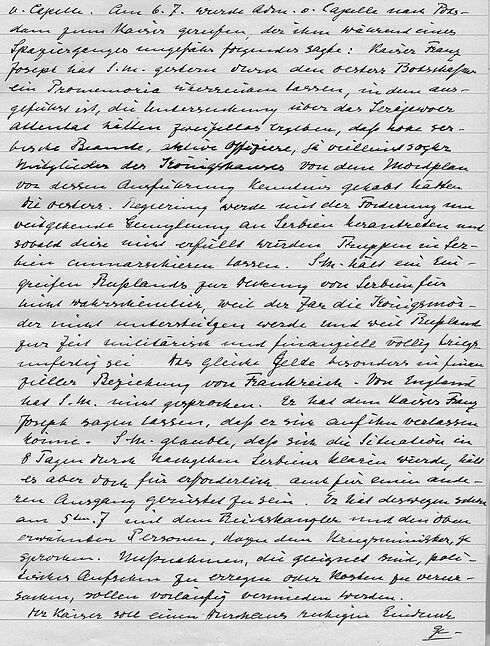 v. Capelle. Am 6.7. wurde Adm. v. Capelle nach Pots-
dam zum Kaiser gerufen, der ihm während eines
Spazierganges ungefähr folgendes sagte: Kaiser Franz
Joseph hat S.M. gestern durch den oesterr. Botschafter
ein Promemoria überreichen lassen, in dem aus-
geführt ist, die Untersuchung über das Serajewoer
Attentat hätten zweifellos ergeben, daß hohe ser-
bische Beamte, aktive Offiziere, ja vielleicht sogar
Mitglieder des Königshauses von dem Mordplan
von dessen Ausführung Kenntnis gehabt hätten
Die oesterr. Regierung werde mit der Forderung um
weitgehende Genugtuung an Serbien herantreten und
sobald diese nicht erfüllt würden Truppen in Ser-
bien einmarschieren lassen. S.M. hält ein Ein-
greifen Rußlands zur Deckung von Serbien für
nicht wahrscheinlich, weil der Zar die Königsmör-
der nicht unterstützen werde und weil Rußland
zur Zeit militärisch und finanziell völlig kriegs-
unfertig sei. Das gleiche gelte besonders in finan-
zieller Beziehung von Frankreich. Von England
hat S.M. nicht gesprochen. Er hat dem Kaiser Franz
Joseph sagen lassen, daß er sich auf ihn verlassen
könne. S.M. glaubte, daß sich die Situation in
8 Tagen durch Nachgeben Serbiens klären würde, hält
es aber doch für erforderlich, auch für einen ande-
ren Ausgang gerüstet zu sein. Er hat deswegen schon
am 5ten.7 mit dem Reichskanzler und den oben
erwähnten Personen, dazu dem Kriegsminister, ge-
sprochen. Maßnahmen, die geeignet sind, poli-
tisches Aufsehen zu erregen oder Kosten zu verur-
sachen, sollen vorläufig vermieden werden.
Der Kaiser soll einen durchaus ruhigen Eindruck
ge-